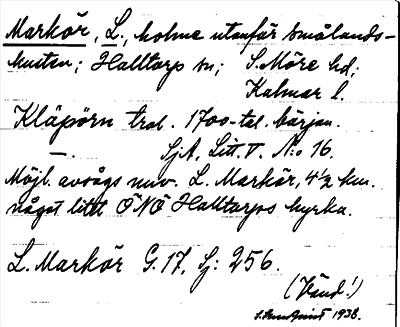 Markör, L., holme utanför Smålands-
kusten; Halltorp sn; S. Möre hd;
Kalmar l.
Kläpörn trol. 1700-tal. början.
—. SjA, Litt. V. N:o 16.
Möjl. avsågs nuv. L. Markör, 4½ km.
något litet ÖNÖ Halltorps kyrka.
L. Markör G. 17, Sj: 256.
(Vänd!)
1938.